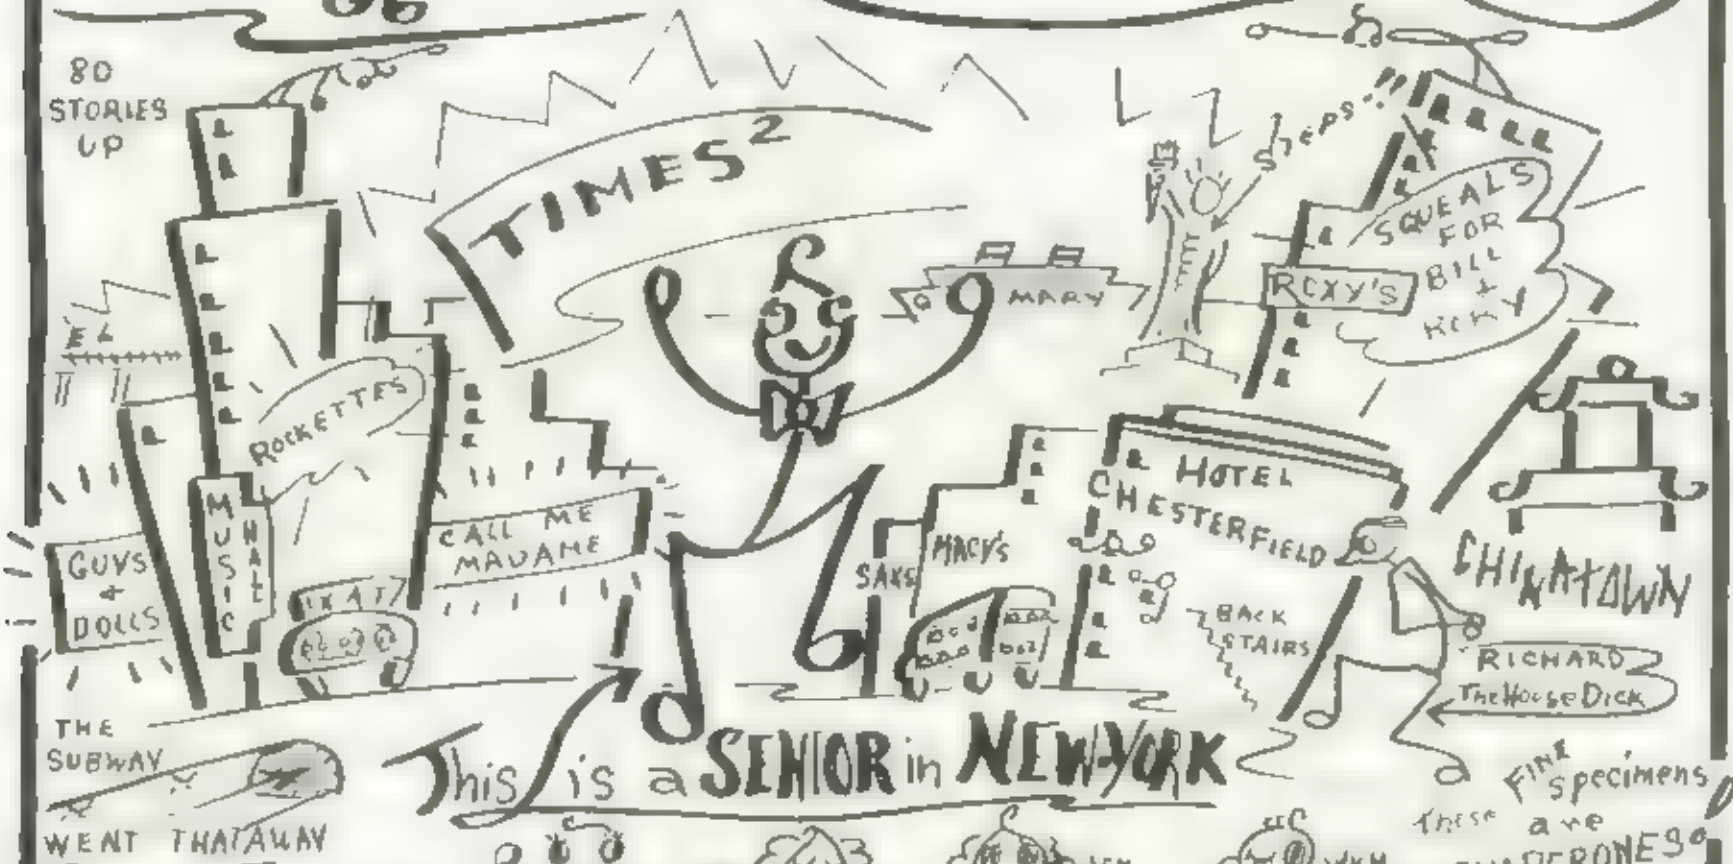 80
STORIES
UP
TIMES²
STEPS!!
SQUEALS
FOR
BILL
+
ROXY'S
MARY
EL
ROCKETTES
MUSIC
HALL
GUYS
+
DOLLS
CALL ME
MADAME
TAXI
SAKS
MACY'S
HOTEL
CHESTERFIELD
BACK
STAIRS
CHINATOWN
RICHARD
The House Dick
THE
SUBWAY
WENT THATAWAY
This is a SENIOR in NEW YORK
These are
FINE
specimens